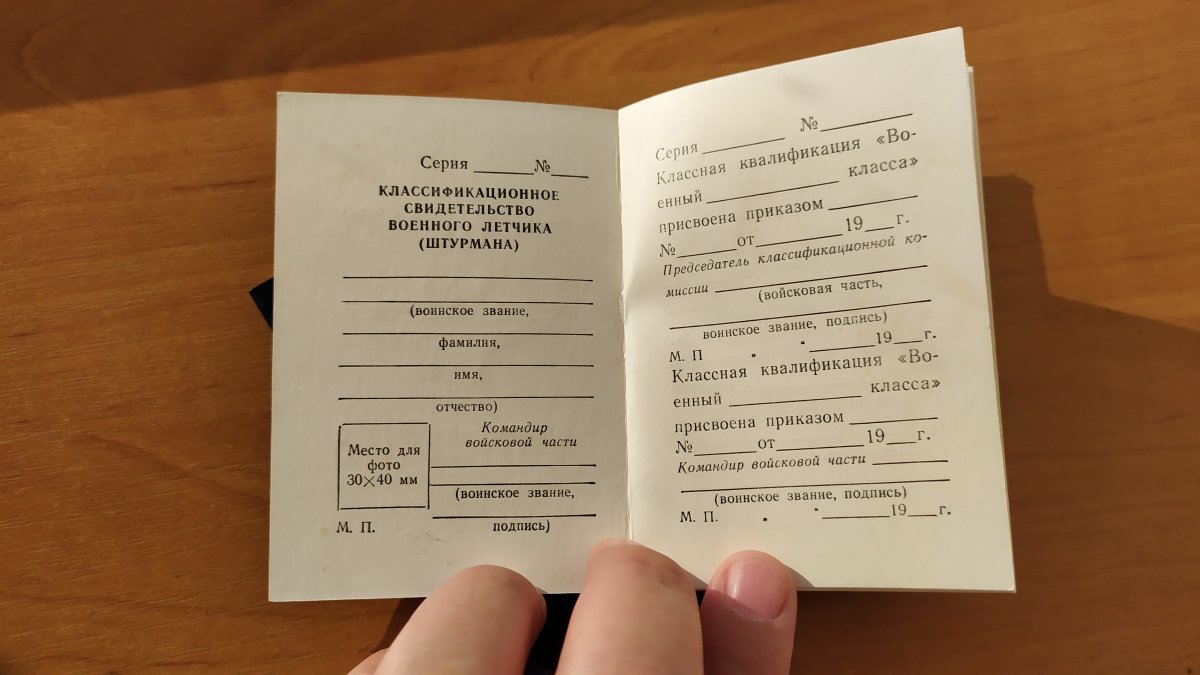 Серия ______ № ____
КЛАССИФИКАЦИОННОЕ
СВИДЕТЕЛЬСТВО
ВОЕННОГО ЛЕТЧИКА
(ШТУРМАНА)
(воинское звание,
фамилия,
имя,
отчество)
Командир
войсковой части
Место для
фото
30×40 мм
(воинское звание,
М. П.
подпись)
Серия ________ № ________
Классная квалификация «Во-
енный ____________ класса»
присвоена приказом ________
№ ______ от ________ 19 ___ г.
Председатель классификационной ко-
миссии ____________
(войсковая часть,
воинское звание, подпись)
М. П " " ______ 19 ___ г.
Классная квалификация «Во-
енный ____________ класса»
присвоена приказом ________
№ ______ от ________ 19 ___ г.
Командир войсковой части ________
(воинское звание, подпись)
М. П. " " ______ 19 ___ г.